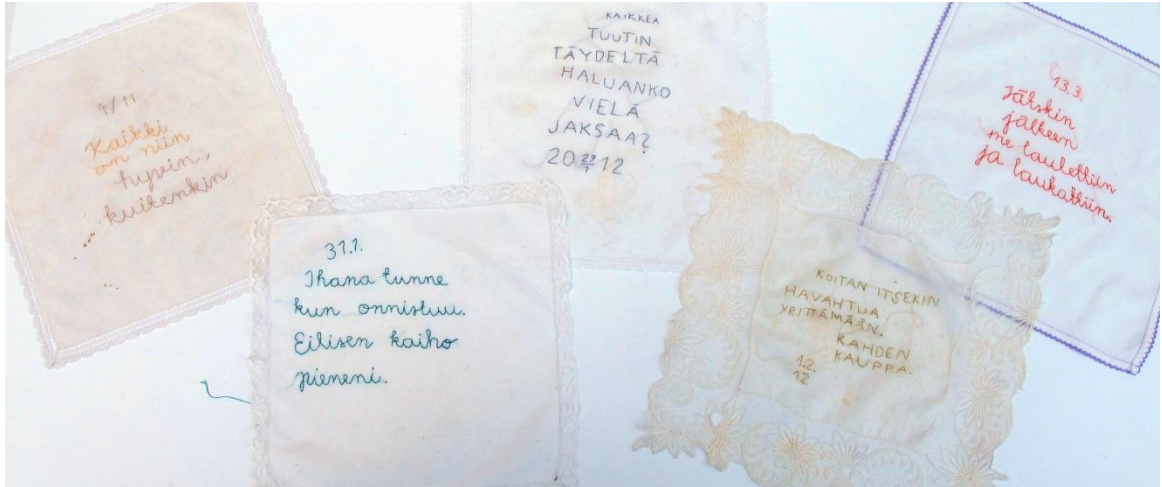 4/11
Kaikki
on niin
hyvin,
kuitenkin
31.1.
Ihana tunne
kun onnistuu.
Eilisen kaiho
pieneni.
KAIKKEA
TUUTIN
TÄYDELTÄ
HALUANKO
VIELÄ
JAKSAA?
20 22/1 12
KOITAN ITSEKIN
HAVAHTUA
YRITTÄMÄÄN.
KAHDEN
KAUPPA.
1.2.
12
13.3.
Jälskin
jälkeen
me laulettiin
ja laukattiin.